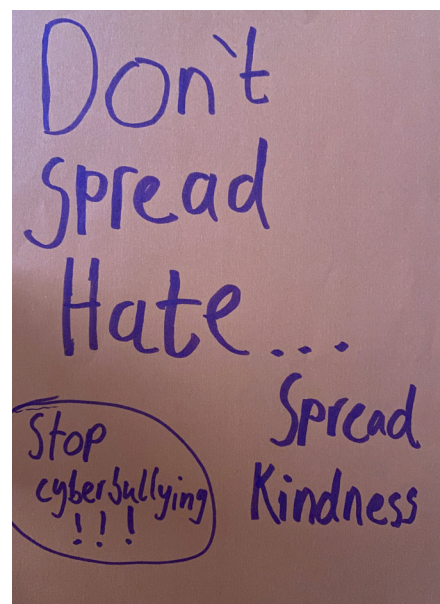 Don't
spread
Hate...
Spread
Kindness
Stop
cyberbullying
!!!